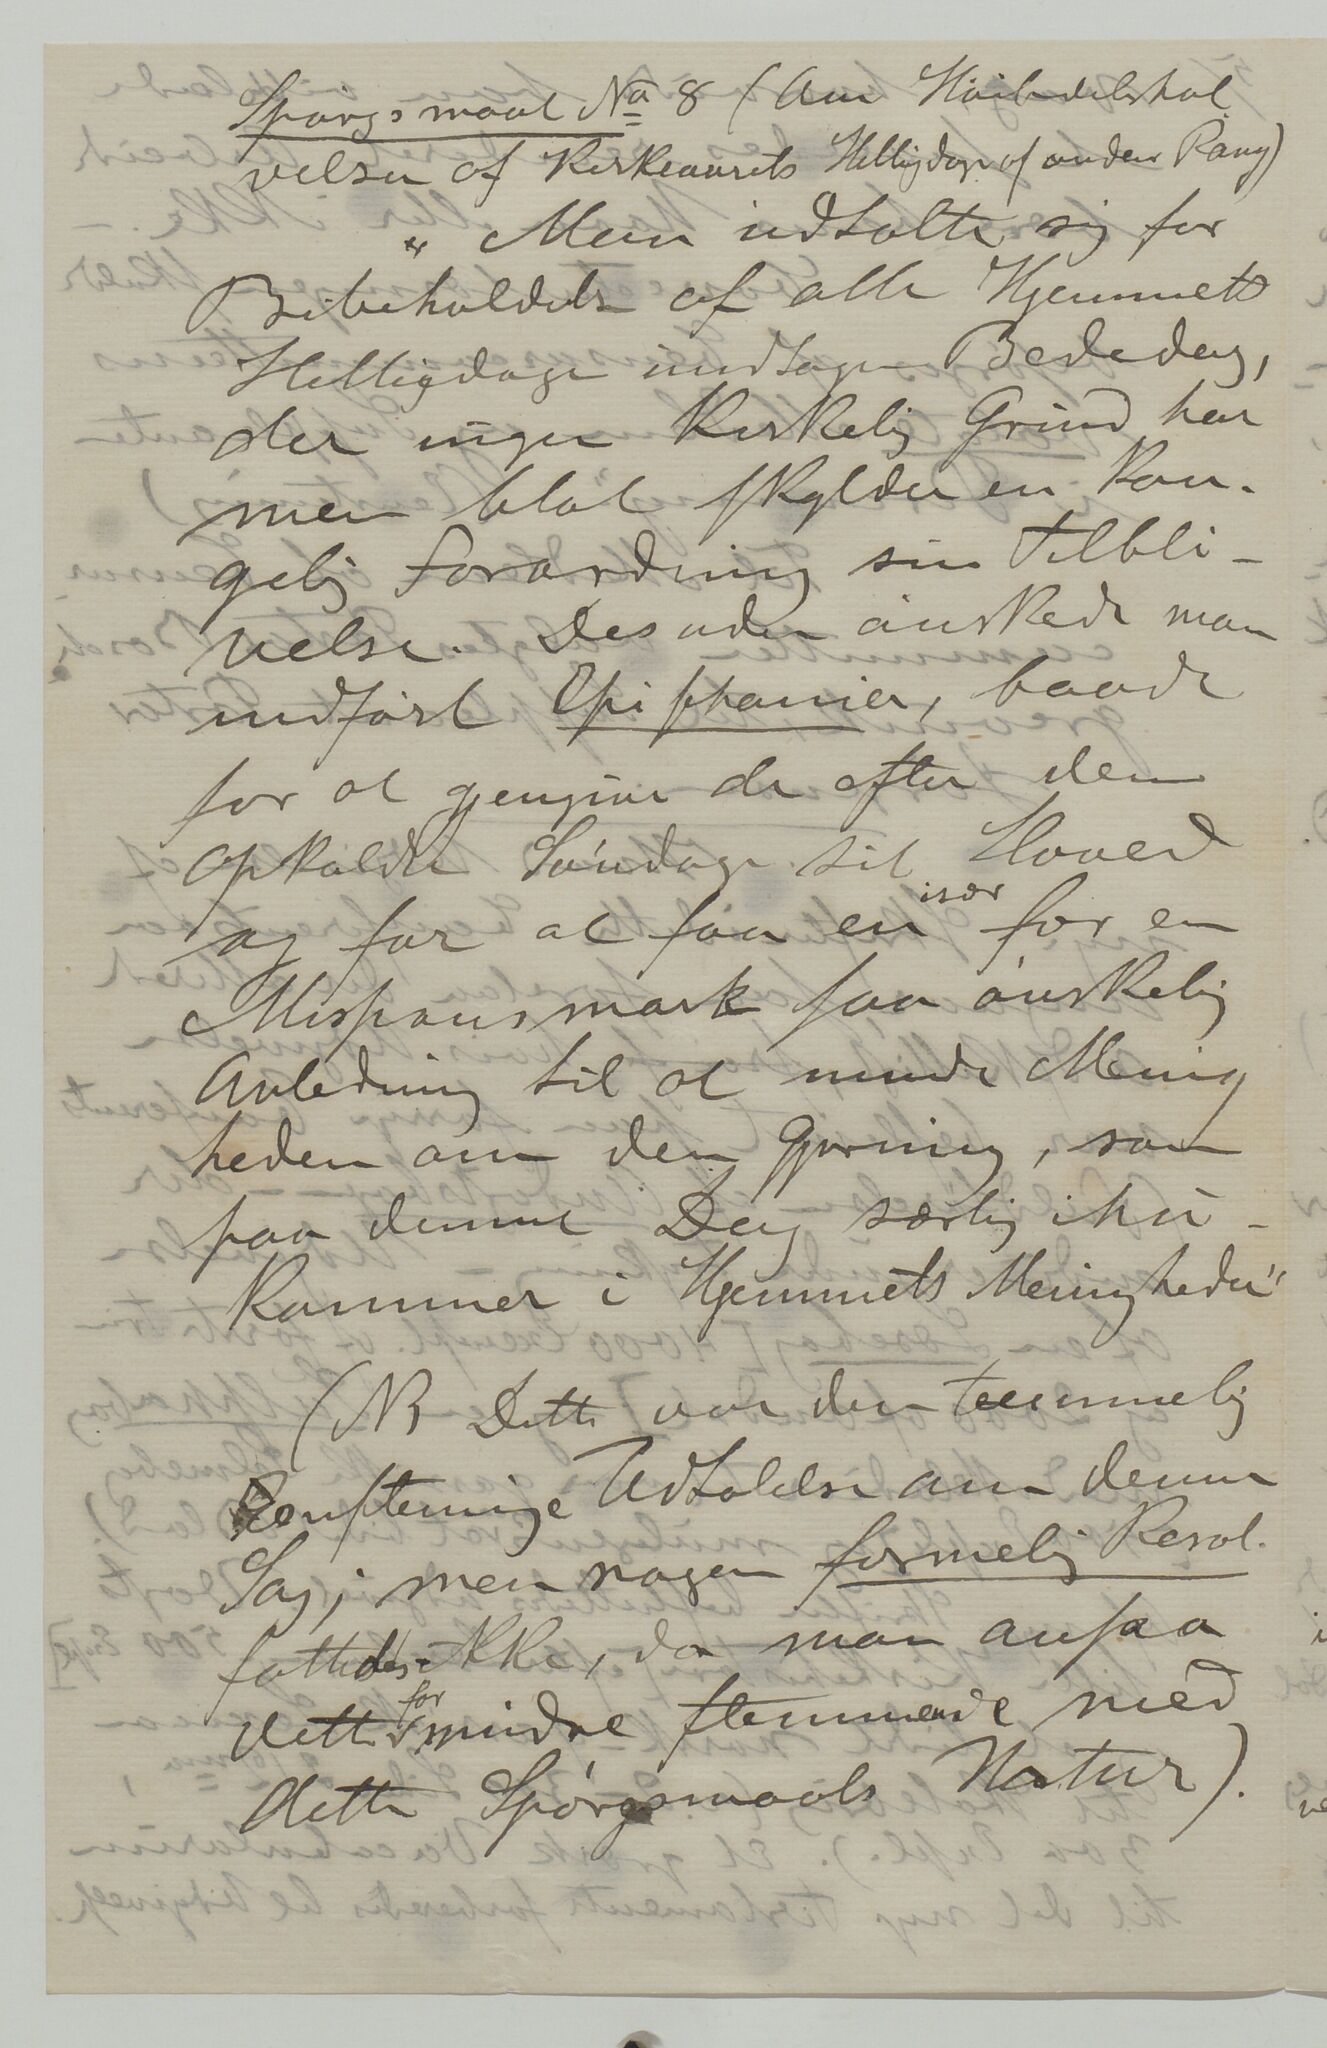 Spørgsmaal No 8 (Om Høitidelighol
velsen af Kirkeaarets Helligdage af anden Rang)
" Man udtalte sig for
Bibeholdelse af alle Hjemmets
Helligdage undtagen Bededag,
der ingen kirkelig Grund har
men blot skylder en kon-
gelig Forordning sin Tilbli-
velse. Desuden ønskede man
indført Epiphanien, baade
for at gjengive de efter den
opkaldte Søndage sit Hoved
og for at faa en isør for en
Missionsmark saa ønskelig
Anledning til at minde Menig
heden om den Gjerning, som
paa denne Dag særlig ihu-
kommer i Hjemmets Menigheder"
(NB Dette var den temmelig
eenstemmige Udtalelse om denne
Sag; men nogen formelig Resol.
fattedes ikke, da man ansaa
dette for mindre stemmende med
dette Spørgsmaals Natur).